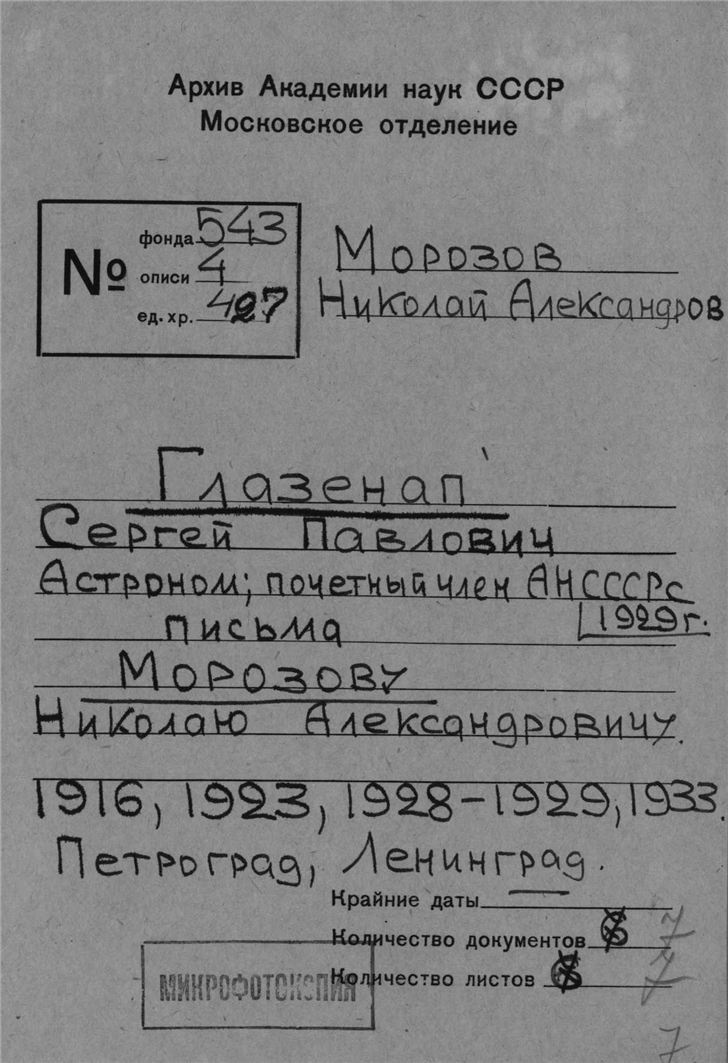 Архив Академии наук СССР
Московское отделение
№
фонда 543
описи 4
ед. хр. 427
Морозов
Николай Александров
Глазенап
Сергей Павлович
Астроном; почетный член АН СССР с
1929 г.
письма
Морозову
Николаю Александровичу.
1916, 1923, 1928-1929, 1933.
Петроград, Ленинград.
Крайние даты
Количество документов 7
Количество листов 7
МИКРОФОТОКОПИЯ
7